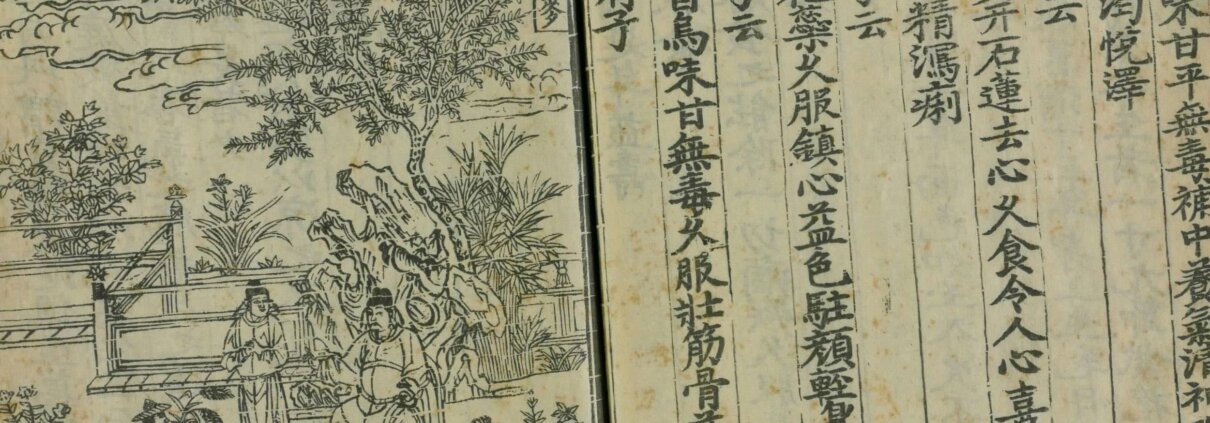 味甘平無毒補中養氣清神
悅澤
云
石蓮去心久食令人心喜
精瀉痢
云
蘂久服鎮心益色駐顏輕身
云
首烏味甘無毒久服壯筋骨
子
麥